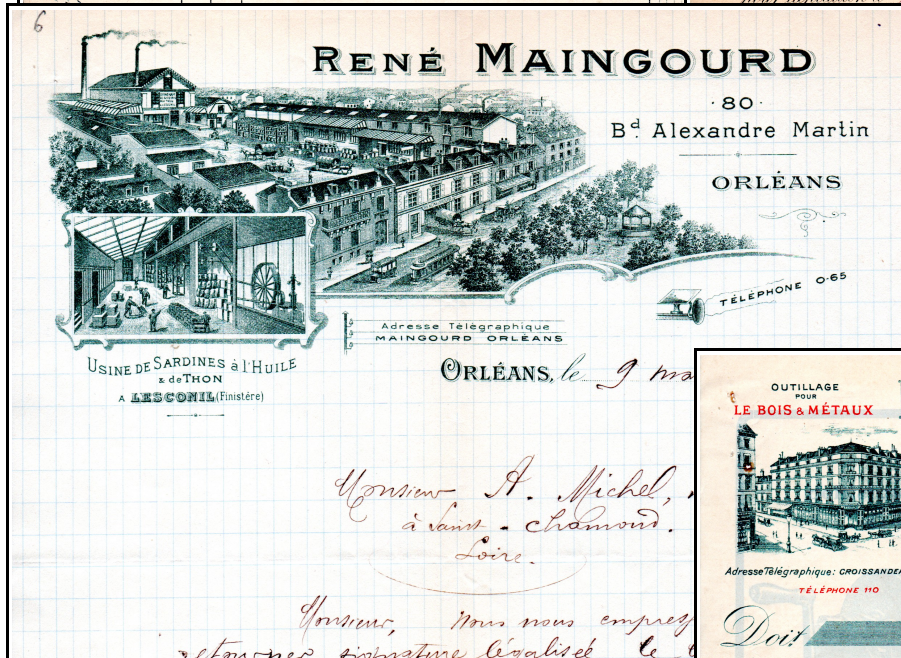 6
RENÉ MAINGOURD
·80·
Bd Alexandre Martin
ORLÉANS
TÉLÉPHONE 0-65
Adresse Télégraphique
MAINGOURD ORLÉANS
USINE DE SARDINES à l'HUILE
& de THON
A LESCONIL (Finistère)
ORLÉANS, le 9 ma
Monsieur A. Michel,
à Saint-Chamond.
Loire.
Monsieur, Nous nous empres
retourner signature légalisée le
OUTILLAGE
POUR
LE BOIS & MÉTAUX
Adresse Télégraphique: CROISSANDEA
TÉLÉPHONE 110
Doit